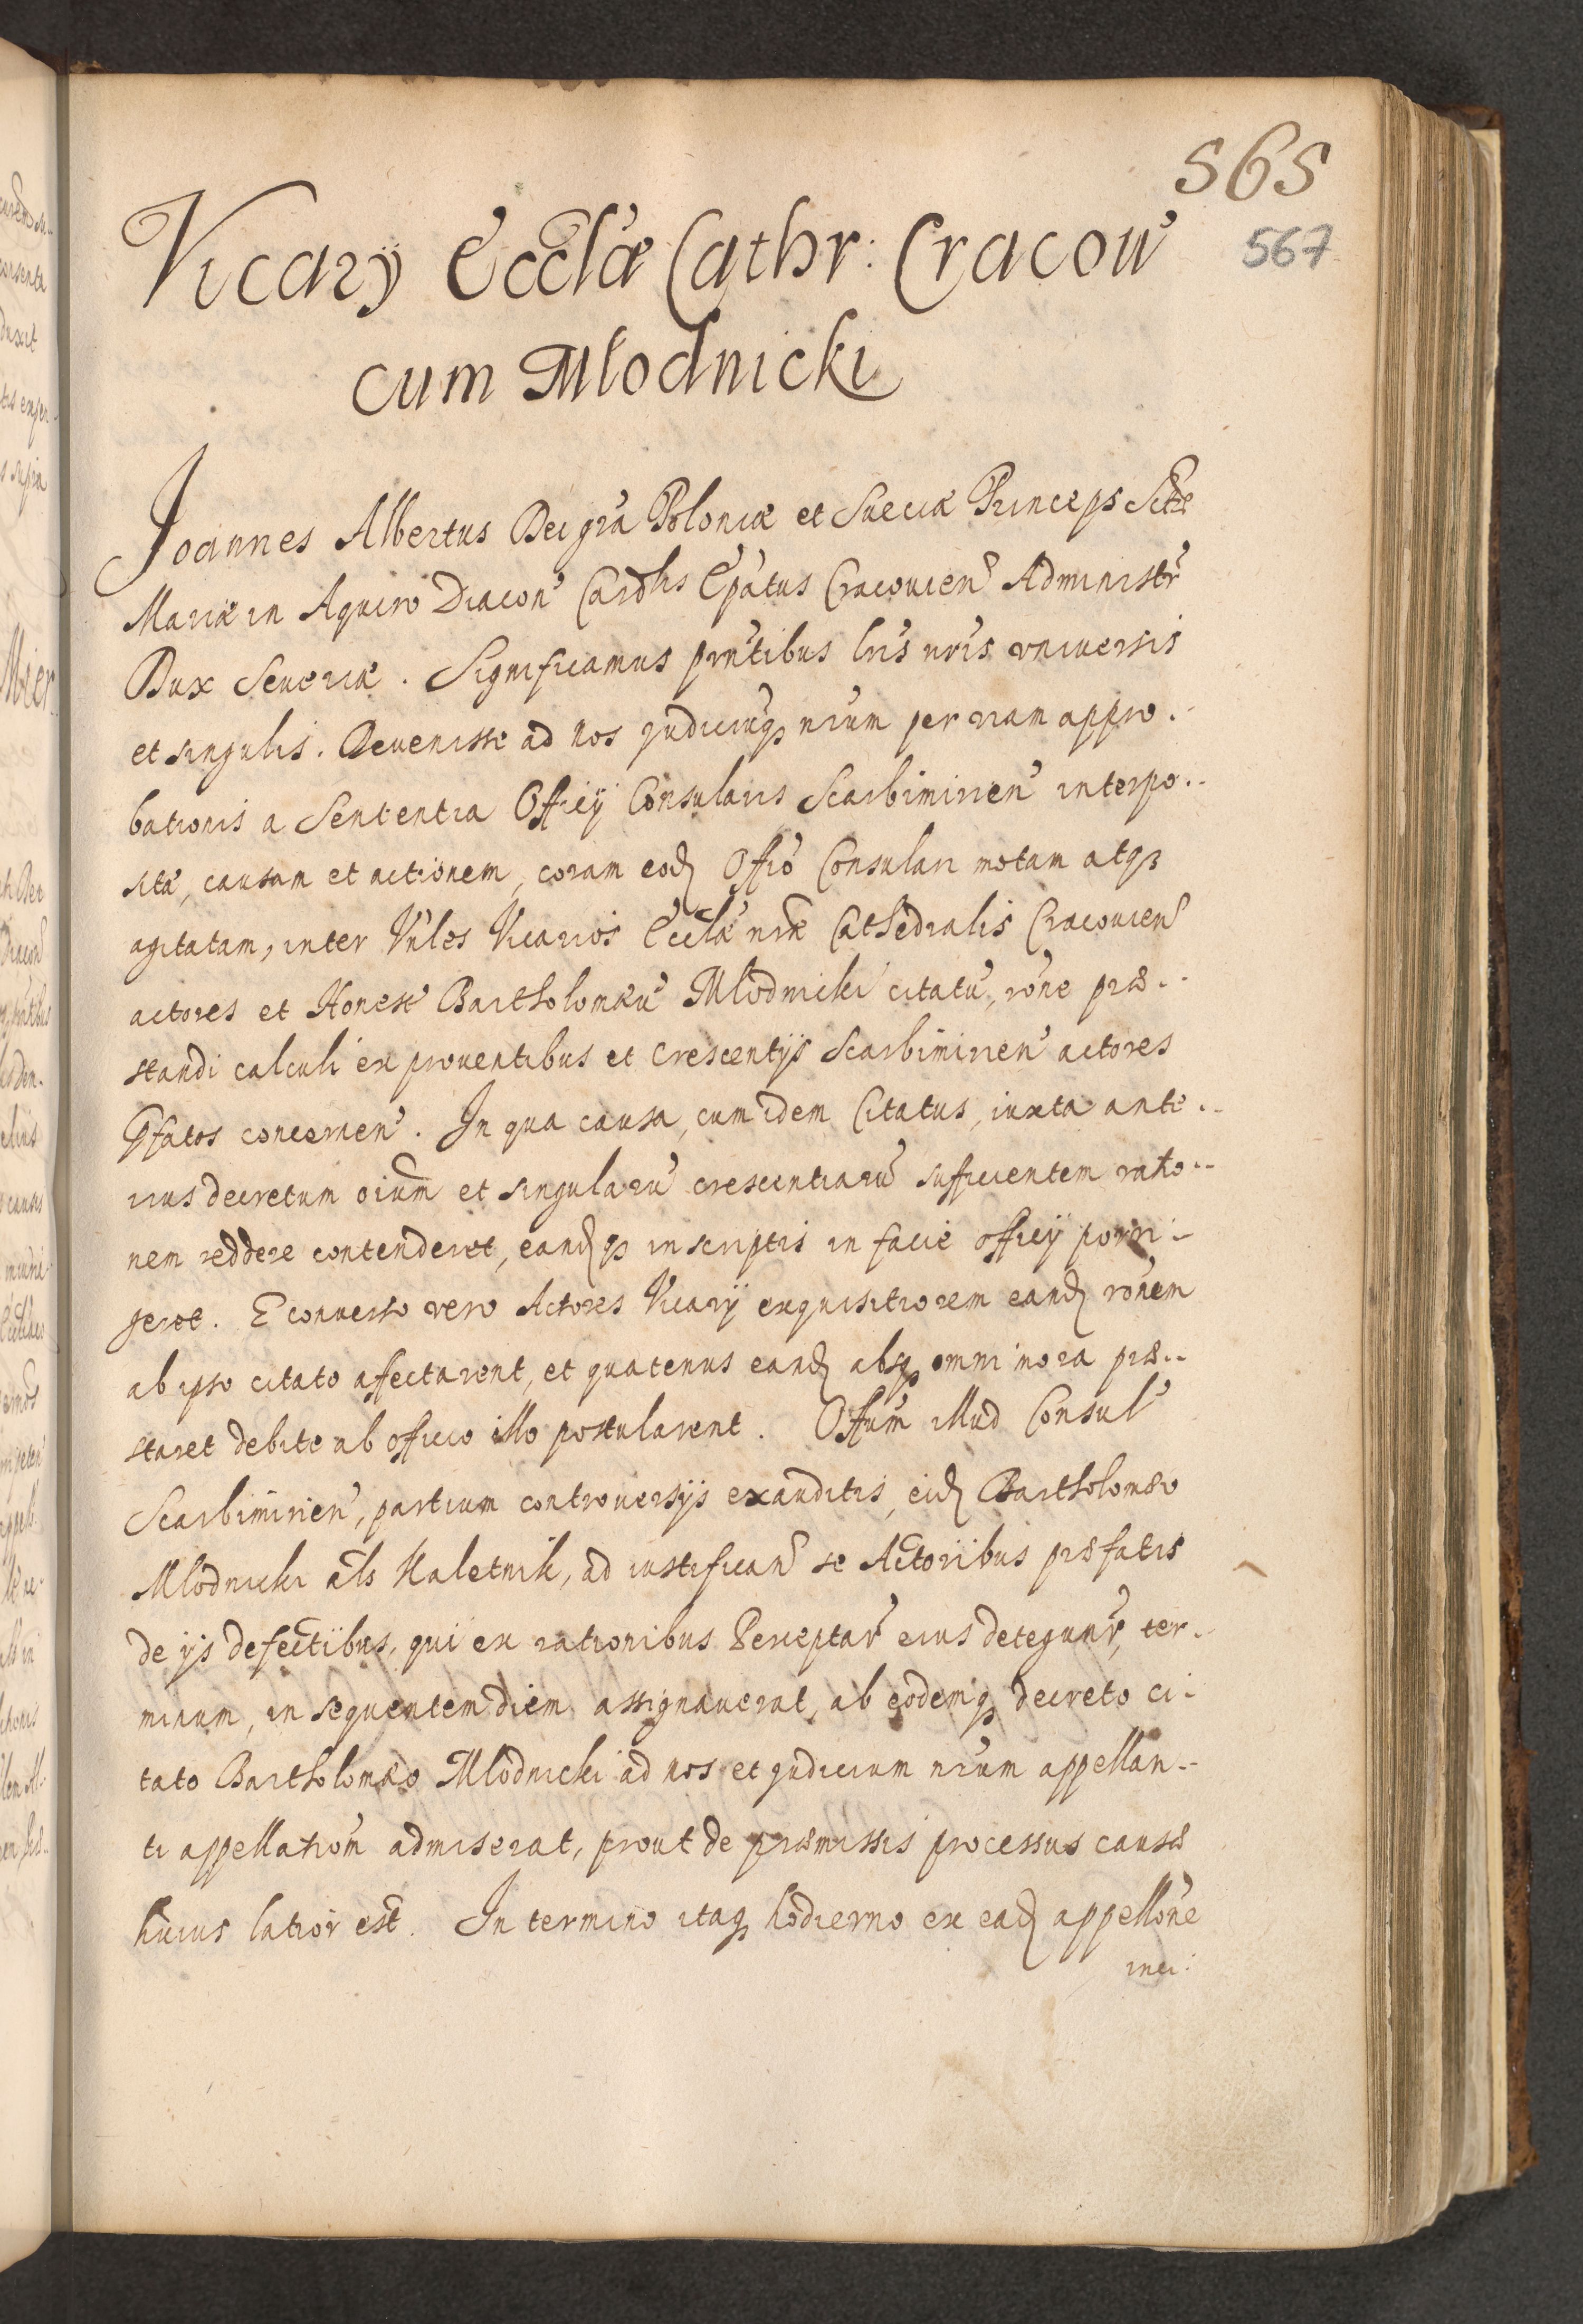 565
567
Vicarÿ Eccl̃æ Cathr: Cracoꝟ
cum Mlodnicki
Joannes Albertus Dei grã Poloniæ et Sueciæ Princeps Sctæ
Mariæ in Aquiro Diacon' Cardlis Ep̃atus Cracouien' Administr̃
Dux Seueriæ. Significamus prñtibus lris nris vniuersis
et singulis. Deuenisse ad nos Judiciuq3 nrum per viam appro.-
bationis a Sententia Officÿ Consularis Scarbimirien' interpo.-
sitã, causam et actionem, coram eod Offiõ Consulari motam atq3
agitatam, inter Vnles Vicarios Eccl̃æ nræ Cathedralis Cracouien'
actores et Honest' Bartholomæu' Mlodnicki citatu', rõne præ.-
standi calculi ex prouentibus et crescentÿs Scarbimirien' actores
Pfatos concernen'. In qua causa, cum idem Citatus, iuxta ante.-
rius decretum oium̃ et singularu' crescentiaru' sufficientem ratio.-
nem reddere contenderet, eandq3 in scriptis in facie officÿ porri-
geret. E conuerso vero Actores Vicarÿ exquisitiorem eand rõnem
ab ipso citato affectarent, et quatenus eand absq3 omni mora præ.-
staret debite ab officio illo postularent. Offium̃ illud Consul'
Scarbimirien', partium controuersÿs exauditis, eid Bartholomæo
Mlodnicki als Kaletnik, ad iustifican' se Actoribus præfatis
de ÿs defectibus, qui ex rationibus Perceptar' eius detegunr̃, ter.-
minum, in sequentem diem assignauerat, ab eodemq3 decreto ci-
tato Bartholomæo Mlodnicki ad nos et Judicium nrum appellan.-
ti appellation̄ admiserat, prout de præmissis processus causæ
huius latior est. In termino itaq3 hodierno ex ead appellõne
inci: